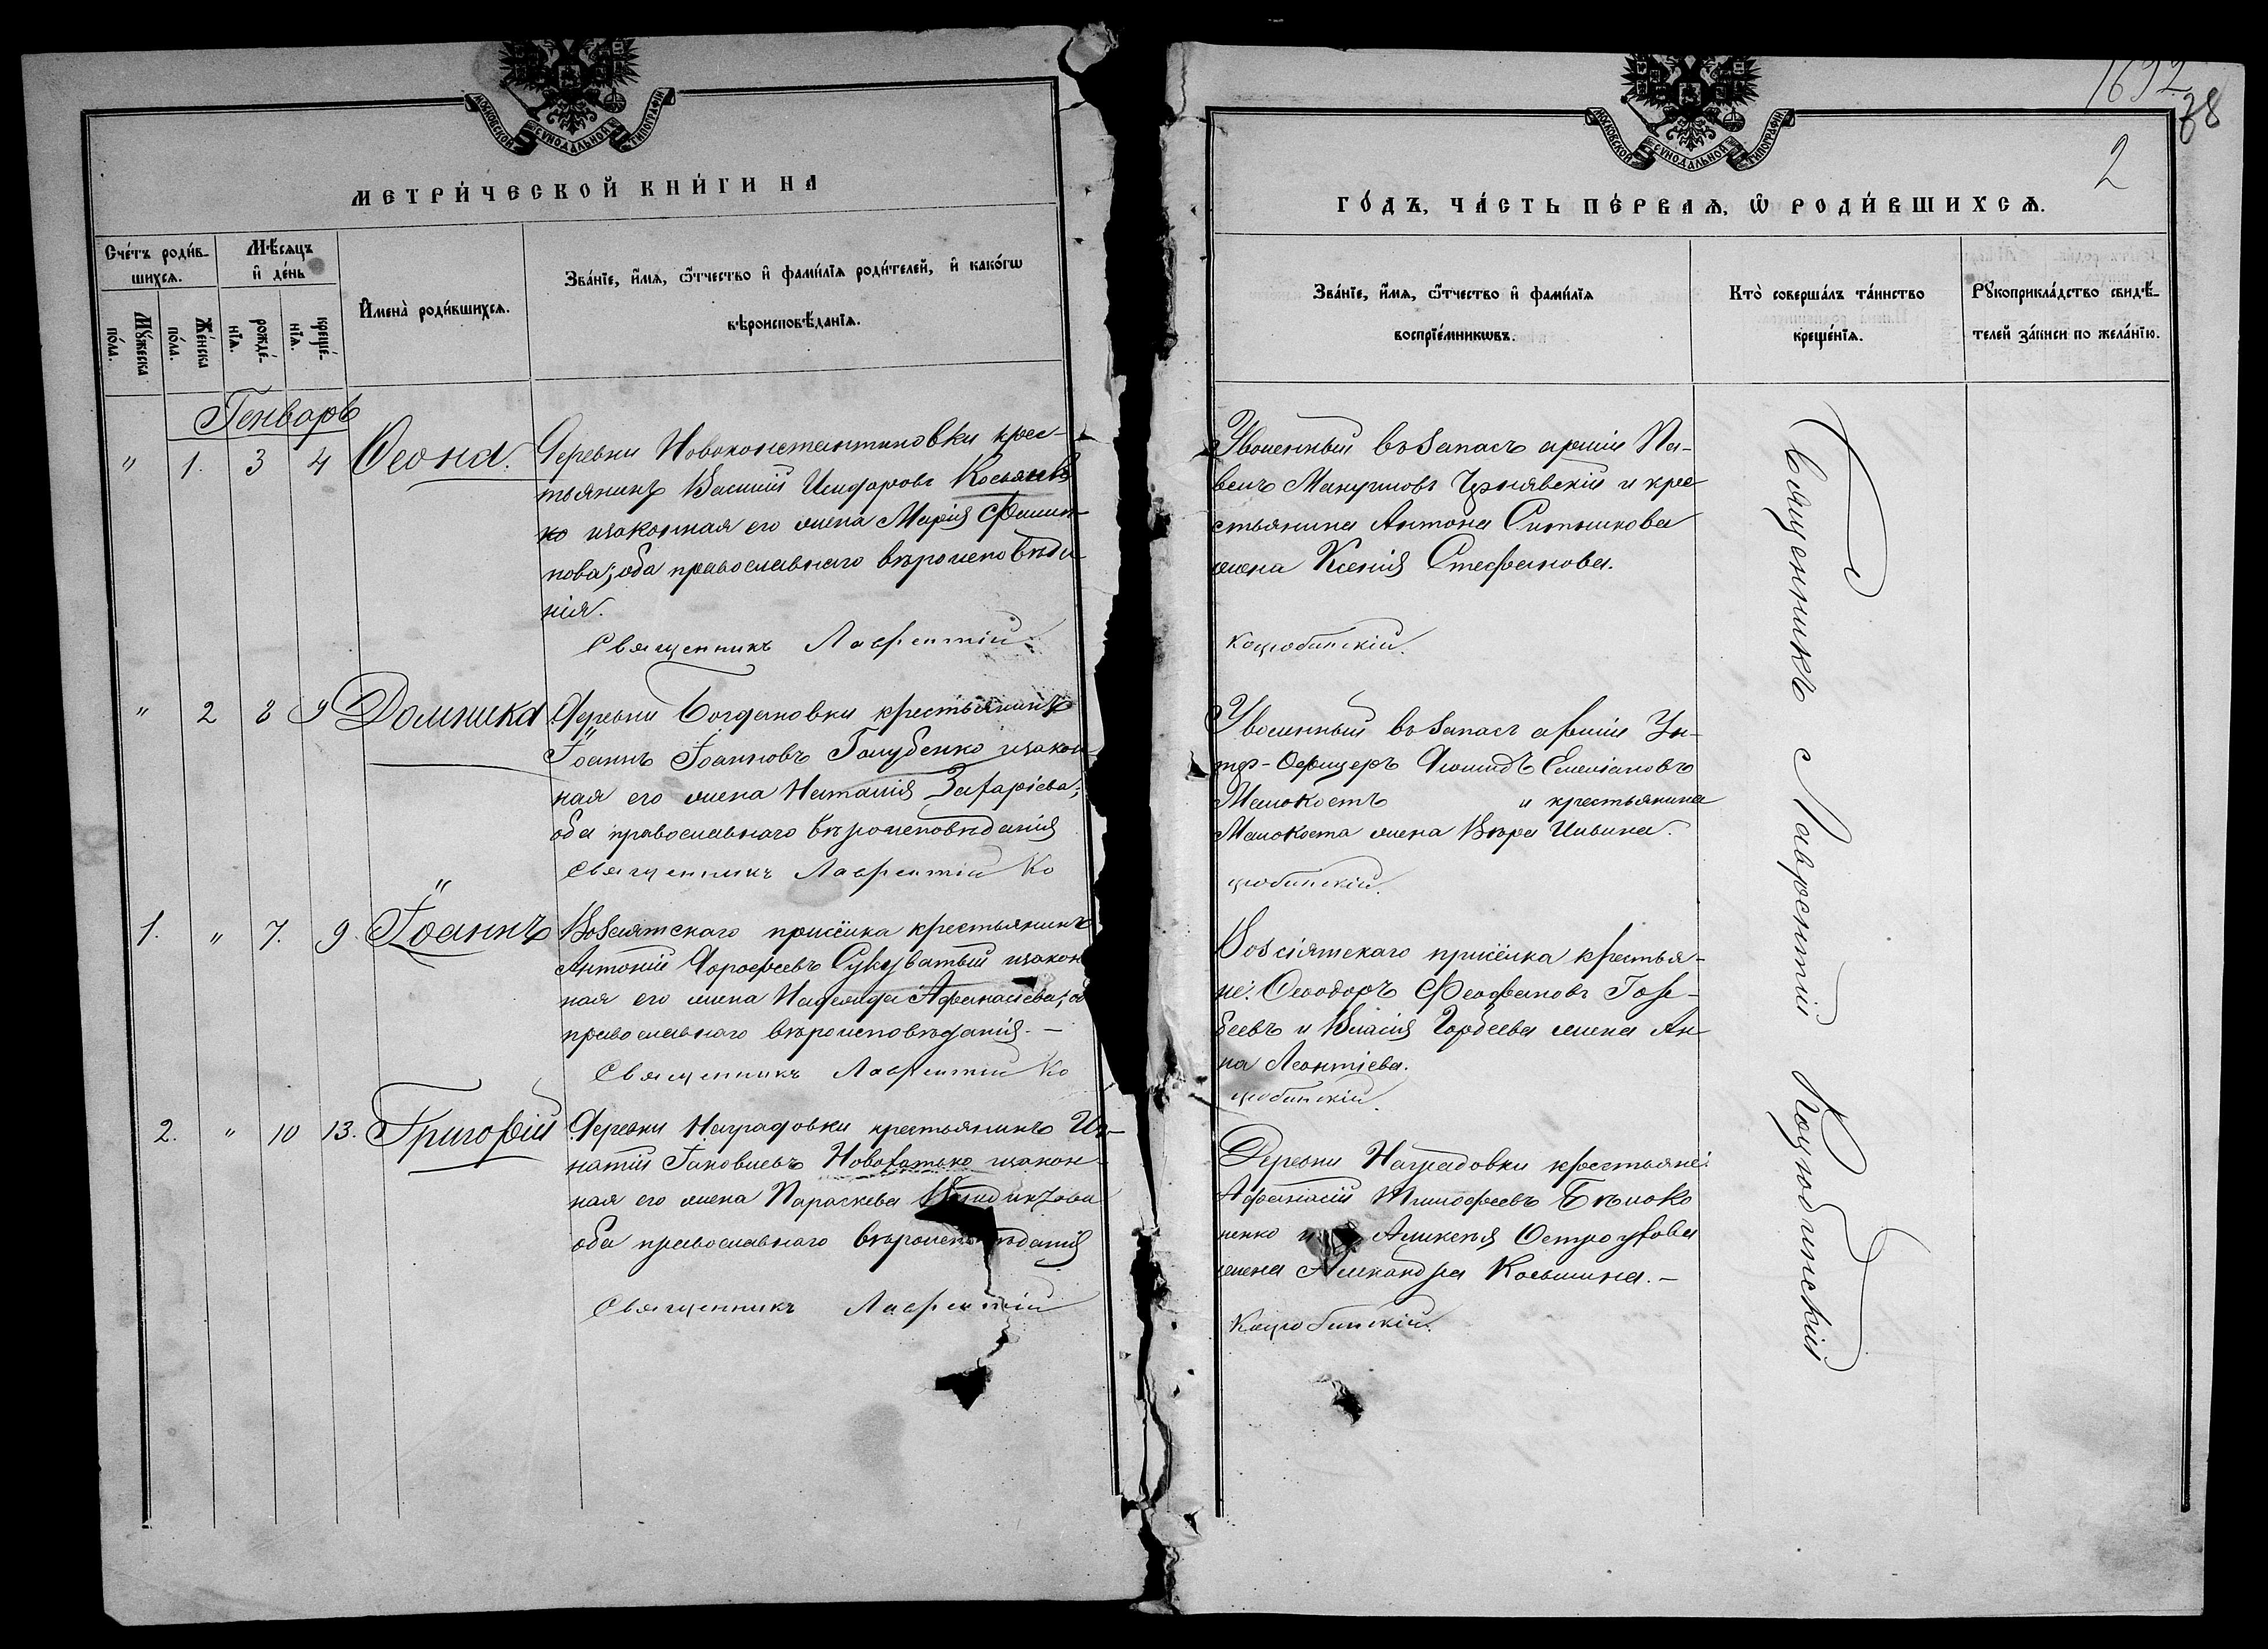 МОСКОВСКОЙ СУНОДАЛЬНОЙ ТИПОГРАФІИ
МЕТРИ́ЧЕСКОЙ КНИ́ГИ НА
Сче́тъ роди́в-
шихсѧ.
Мѣ́сѧцъ
и҆ де́нь
Мꙋ́жеска
по́ла.
Же́нска
по́ла.
рожде́-
нїѧ.
креще́-
нїѧ.
И҆мена̀ роди́вшихсѧ.
Зва́нїе, и҆́мѧ, ѻ҆́тчество и҆ фами́лїѧ роди́телей, и҆ како́гѡ
вѣроисповѣ́данїѧ.
Генварь
" 1. 3 4 Ѳеона. Деревни Новоконстантиновки крес-
тьянинъ Василій Исидоровъ Косьянен
ко изаконная его жена Марія Филип-
пова; оба православнаго вѣроисповѣда
нія.
Священникъ Лаврентій
" 2 8 9 Домника Деревни Богдановки крестьянинъ
Іоаннъ Іоанновъ Голубенко изакон-
ная его жена Наталія Захаріева;
оба православнаго вѣроисповѣданія
Священникъ Лаврентій Ко
1. " 7. 9. Іоаннъ Возсіятскаго присёлка крестьянинъ
Антоній Дорофеевъ Сукуватый изакон
ная его жена Надежда Афанасіева; об
православнаго вѣроисповѣданія. —
Священникъ Лаврентій Ко
2. " 10 13. Григорій Деревни Наградовки крестьянинъ Иг-
натій Іаковлевъ Новохатько изакон-
ная его жена Параскева
оба православнаго вѣроисповѣданія
Священникъ Лаврентій
1632
78
2
МОСКОВСКОЙ СУНОДАЛЬНОЙ ТИПОГРАФІИ
ГО́ДЪ, ЧА́СТЬ ПЕ́РВАѦ, Ѡ҆ РОДИ́ВШИХСѦ.
Зва́нїе, и҆́мѧ, ѻ҆́тчество и҆ фами́лїѧ
воспрїе́мникѡвъ.
Кто̀ соверша́лъ та́инство
креще́нїѧ.
Рꙋкоприкла́дство свидѣ́-
телей за́писи по жела́нїю.
Уволенный въ запасъ арміи Па-
велъ Мануиловъ Чернявскій и кре
стьянина Антона Ситникова
жена Ксенія Стефанова.
Коцюбинскій.
Уволенный въ запасъ арміи Ун-
тф-Офицеръ Леонидъ Емеліановъ
Малокостъ и крестьянина
Малокоста жена Вѣра Ильина.
цюбинскій.
Возсіятскаго присёлка крестья-
не: Ѳеодоръ Феофановъ Гор-
беевъ и Власія Горбеева жена Ан
на Леонтіева.
цюбинскій.
Деревни Наградовки крестьяне:
Афанасій Тимофеевъ Бѣлоко
ненко и Алексея Остроухова
жена Александра Косьмина. —
Коцюбинскій.
Священникъ Лаврентій Коцюбинскій